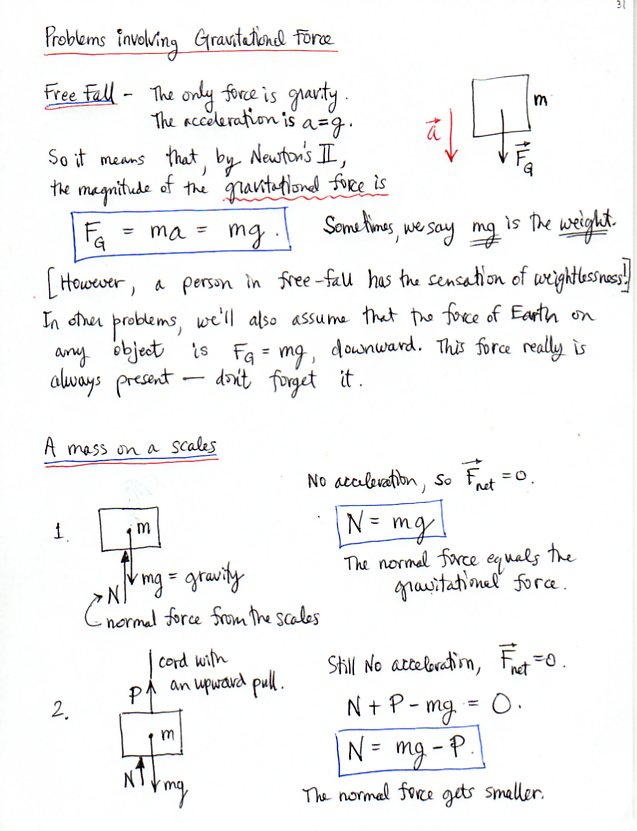 31
Problems involving Gravitational Force
Free Fall - The only force is gravity.
The acceleration is a=g.
m
a
F_G
So it means that, by Newton's II,
the magnitude of the gravitational force is
F_G = ma = mg. Sometimes, we say mg is the weight.
[However, a person in free-fall has the sensation of weightlessness!]
In other problems, we'll also assume that the force of Earth on
any object is F_G = mg, downward. This force really is
always present — don't forget it.
A mass on a scales
No acceleration, so F_net = 0.
1. m
N = mg
mg = gravity
N
The normal force equals the
gravitational force.
normal force from the scales
cord with
an upward pull.
P
Still No acceleration, F_net = 0.
2. m
N + P - mg = 0.
N = mg - P.
N mg
The normal force gets smaller.